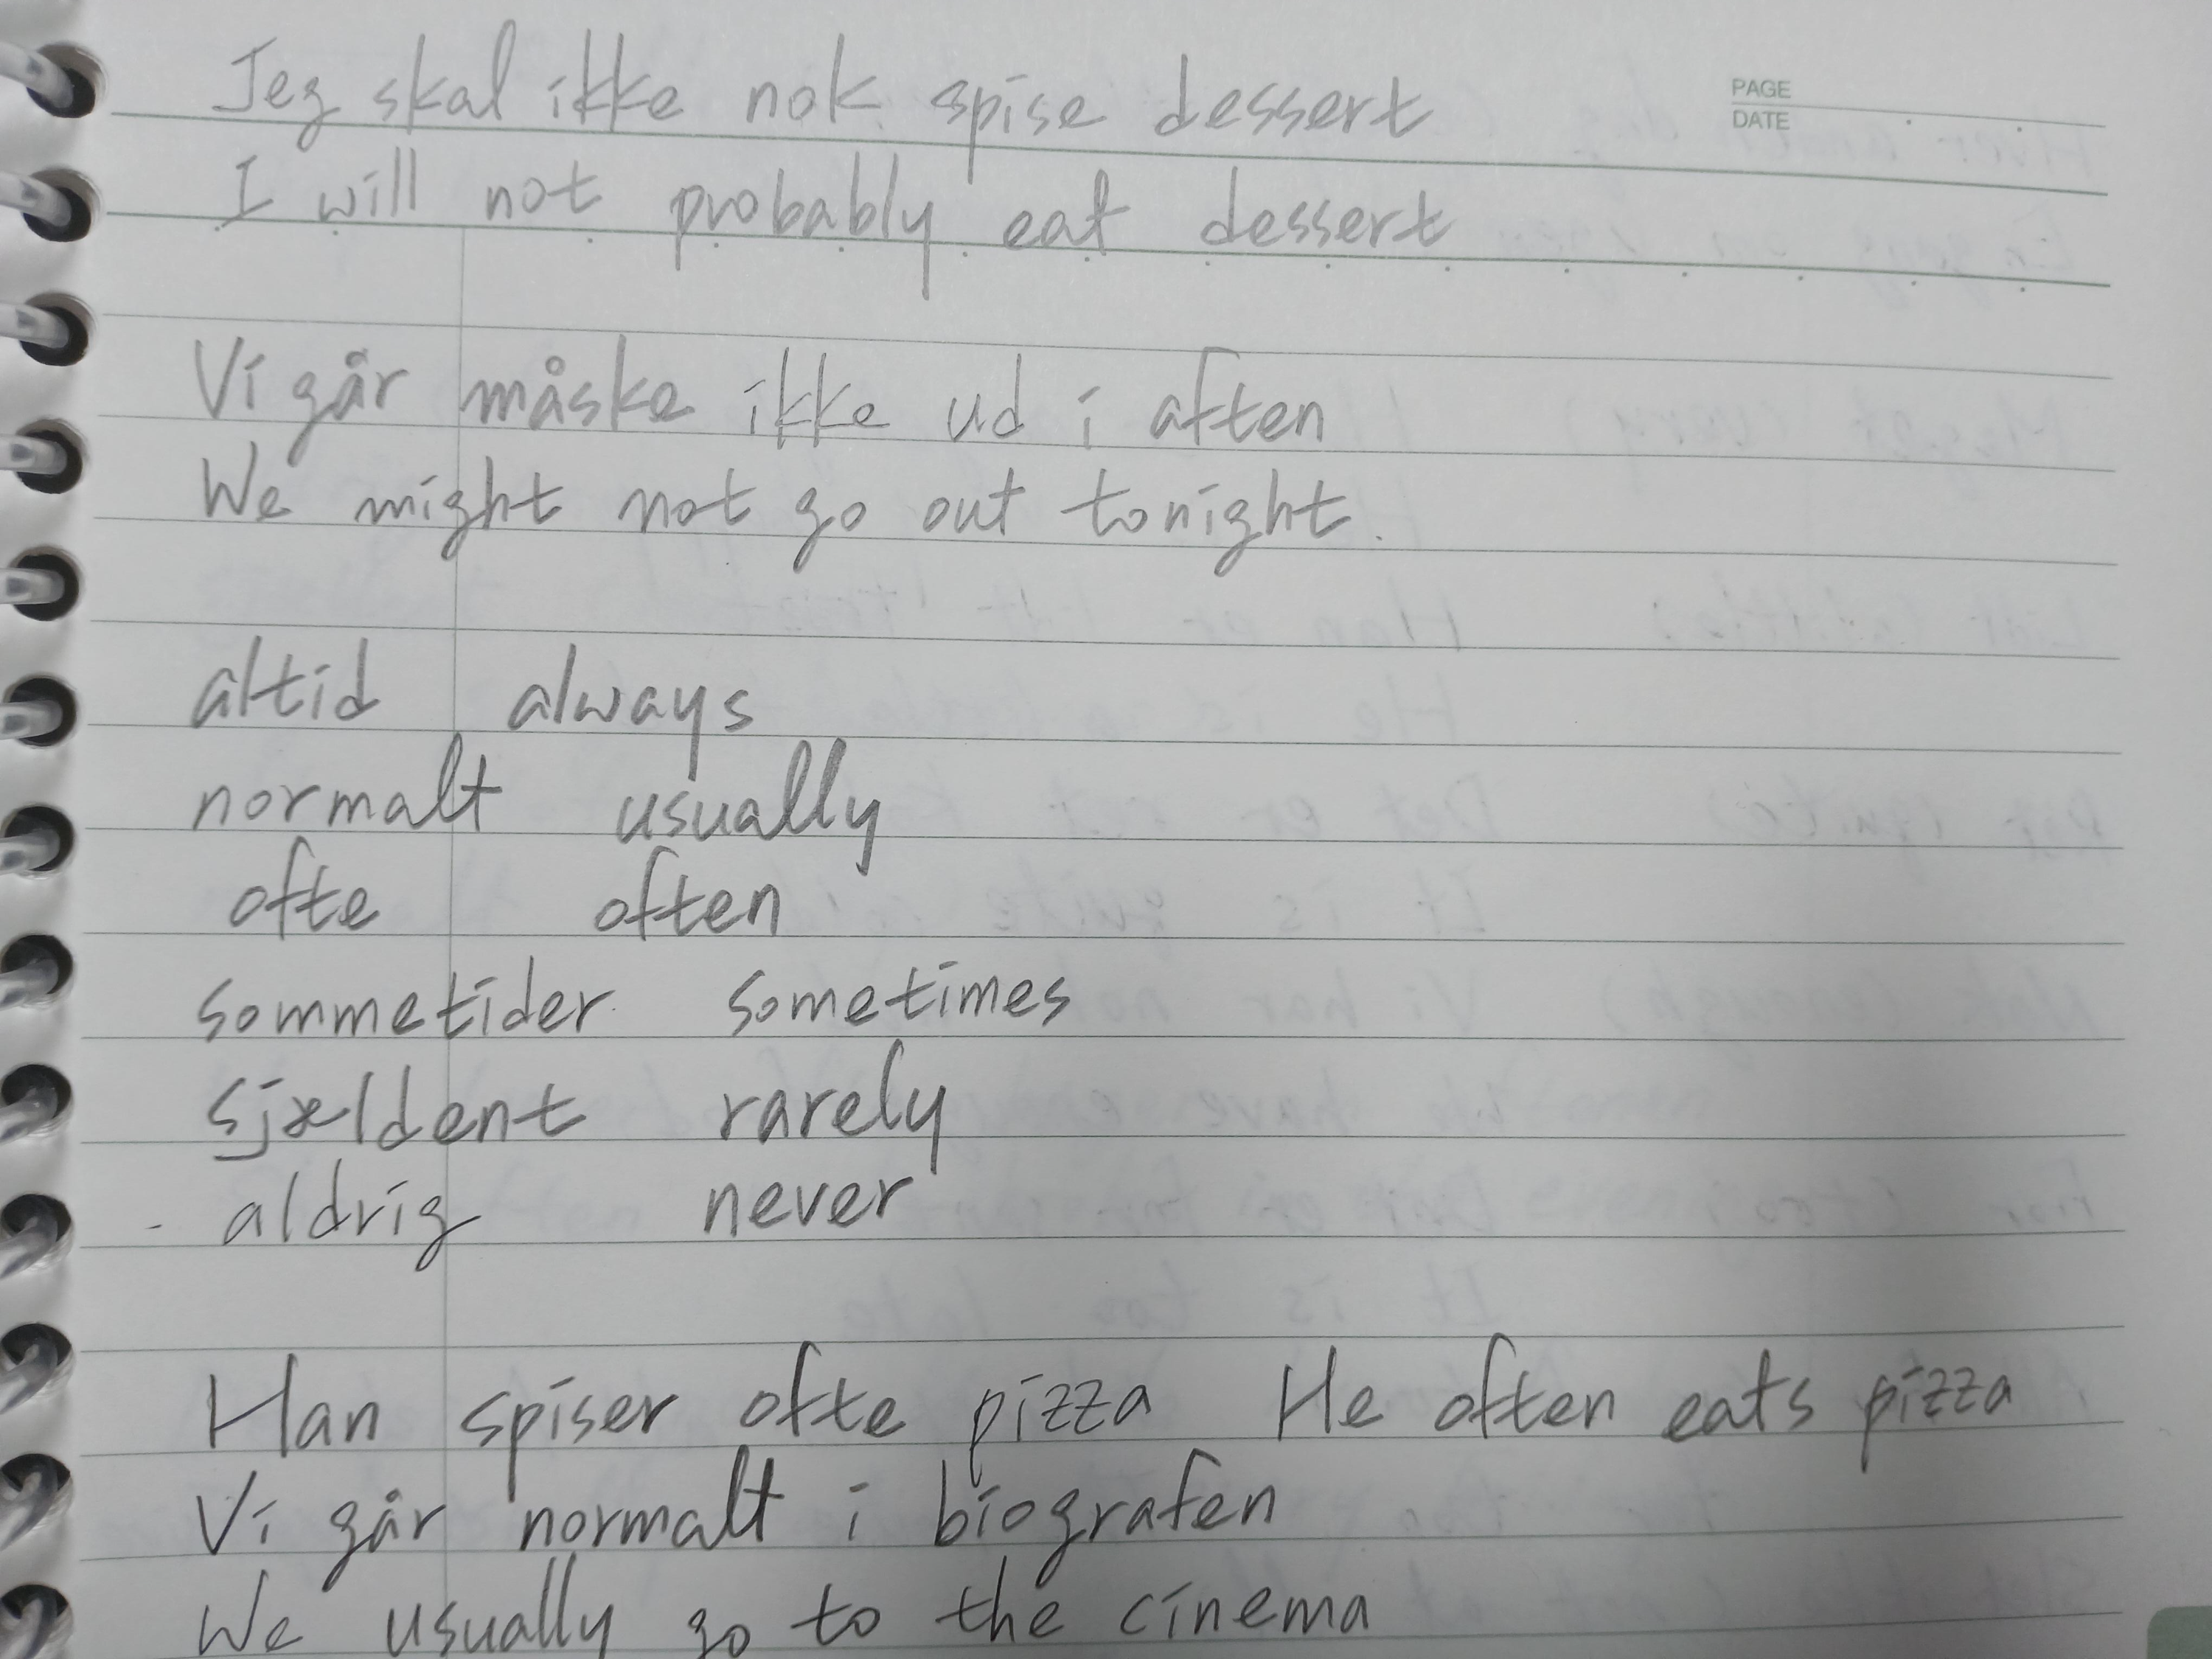 Jeg skal ikke nok spise dessert
PAGE
DATE
I will not probably eat dessert
Vi går måske ikke ud i aften
We might not go out tonight.
altid always
normalt usually
ofte often
sommetider sometimes
sjældent rarely
aldrig never
Han spiser ofte pizza He often eats pizza
Vi går normalt i biografen
We usually go to the cinema